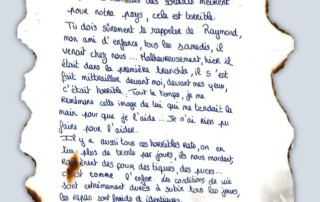 des soldats meurent
pour notre pays, cela est terrible.
Tu dois sûrement te rappeler de Raymond,
mon ami d'enfance, tous les samedis, il
venait chez nous... Malheureusement, hier il
était dans la première tranchée, il s'est
fait mitrailler devant moi, devant mes yeux,
c'était horrible. Tout le temps, je me
remémore cette image de lui qui me tendait la
main pour que je l'aide... Je n'ai rien pu
faire pour l'aider.
Il y a aussi tous ces horribles rats, on en
tue plus de trente par jours, ils nous mordent,
Ramènent des poux, des tiques, des puces...
c'est comme l'enfer. Les conditions de vie
sont extrêmement dures à subir tous les jours,
les repas sont froids et identiques.